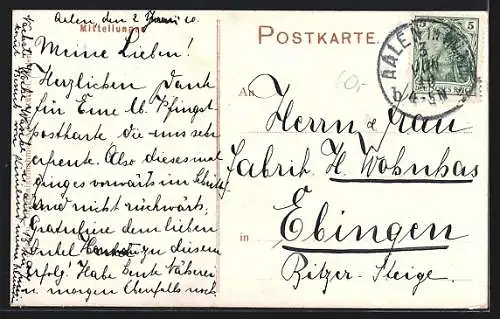 Aalen den 2 Juni 20.
Mitteilungen
POSTKARTE.
5
AALEN IN
JUN
b 4-5N
Meine Lieben!
Herzlichen Dank
für Eure lb. Pfingst
postkarte die uns sehr
erfreute. Also dieses mal
ginges vorwärts im
und nicht rückwärts.
Gratuliere dem lieben
Onkel zu diesem
Erfolg! Habe heute Näherei
u morgen Ebenfalls noch
40,-
An
Herrn & Frau
Fabrik. H. Wohnhas
in
Ebingen
Bitzer-Steige.